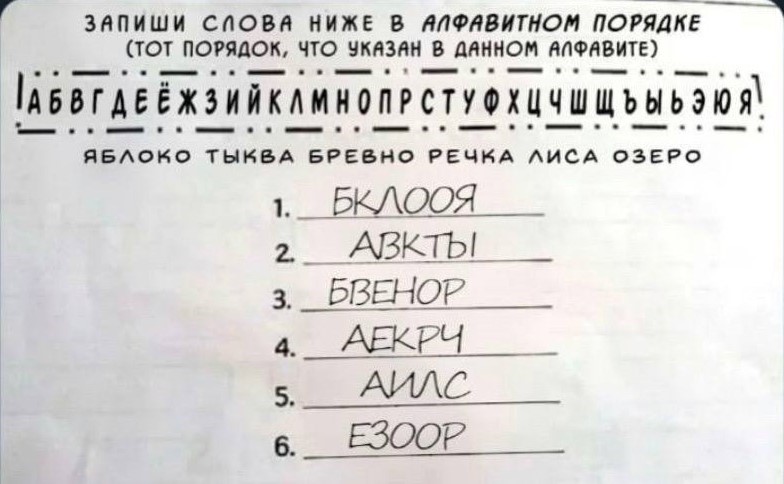 ЗАПИШИ СЛОВА НИЖЕ В АЛФАВИТНОМ ПОРЯДКЕ
(ТОТ ПОРЯДОК, ЧТО УКАЗАН В ДАННОМ АЛФАВИТЕ)
АБВГДЕЁЖЗИЙКЛМНОПРСТУФХЦЧШЩЪЫЬЭЮЯ
ЯБЛОКО ТЫКВА БРЕВНО РЕЧКА ЛИСА ОЗЕРО
1. БКЛООЯ
2. АВКТЫ
3. БВЕНОР
4. АЕКРЧ
5. АИЛС
6. ЕЗООР